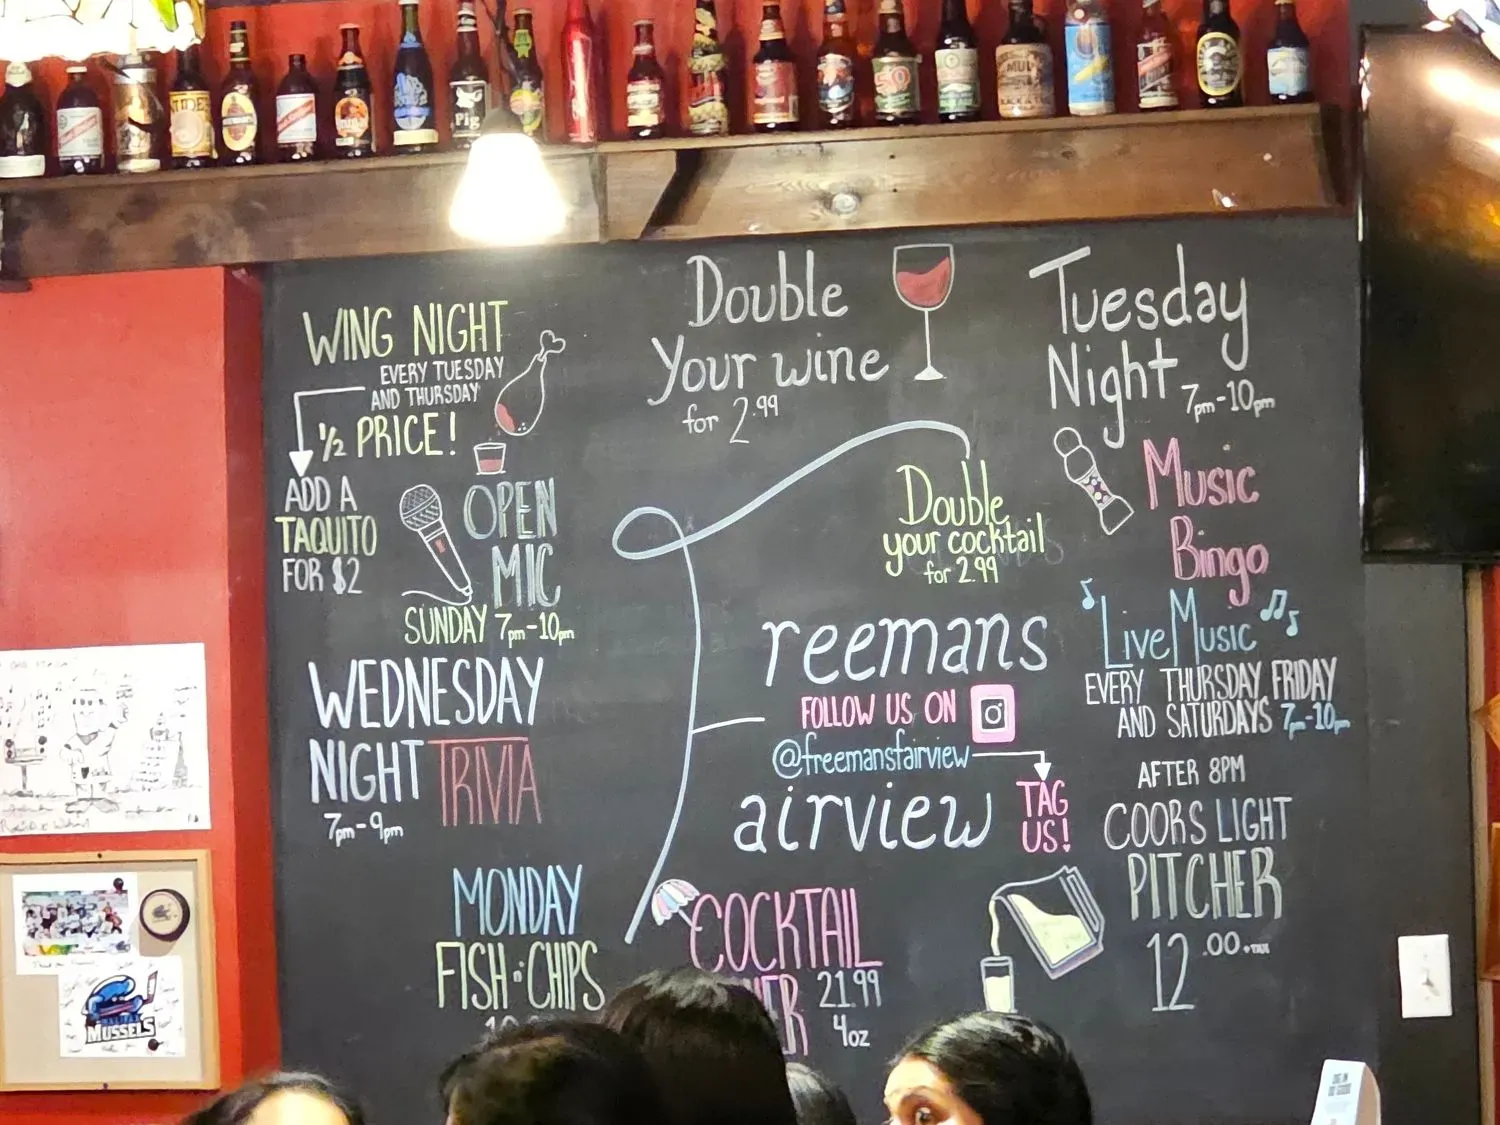 WING NIGHT
EVERY TUESDAY
AND THURSDAY
1/2 PRICE!
ADD A
TAQUITO
FOR $2
OPEN
MIC
SUNDAY 7pm-10pm
WEDNESDAY
NIGHT TRIVIA
7pm-9pm
MONDAY
FISH n' CHIPS
Double
Your wine
for 2.99
Double
your cocktail
for 2.99
reemans
FOLLOW US ON
@freemansfairview
TAG
US!
airview
COCKTAIL
21.99
4oz
Tuesday
Night 7pm-10pm
Music
Bingo
Live Music
EVERY THURSDAY, FRIDAY
AND SATURDAYS 7pm-10pm
AFTER 8PM
COORS LIGHT
PITCHER
12.00+TAX
Pig
50
MUSSELS